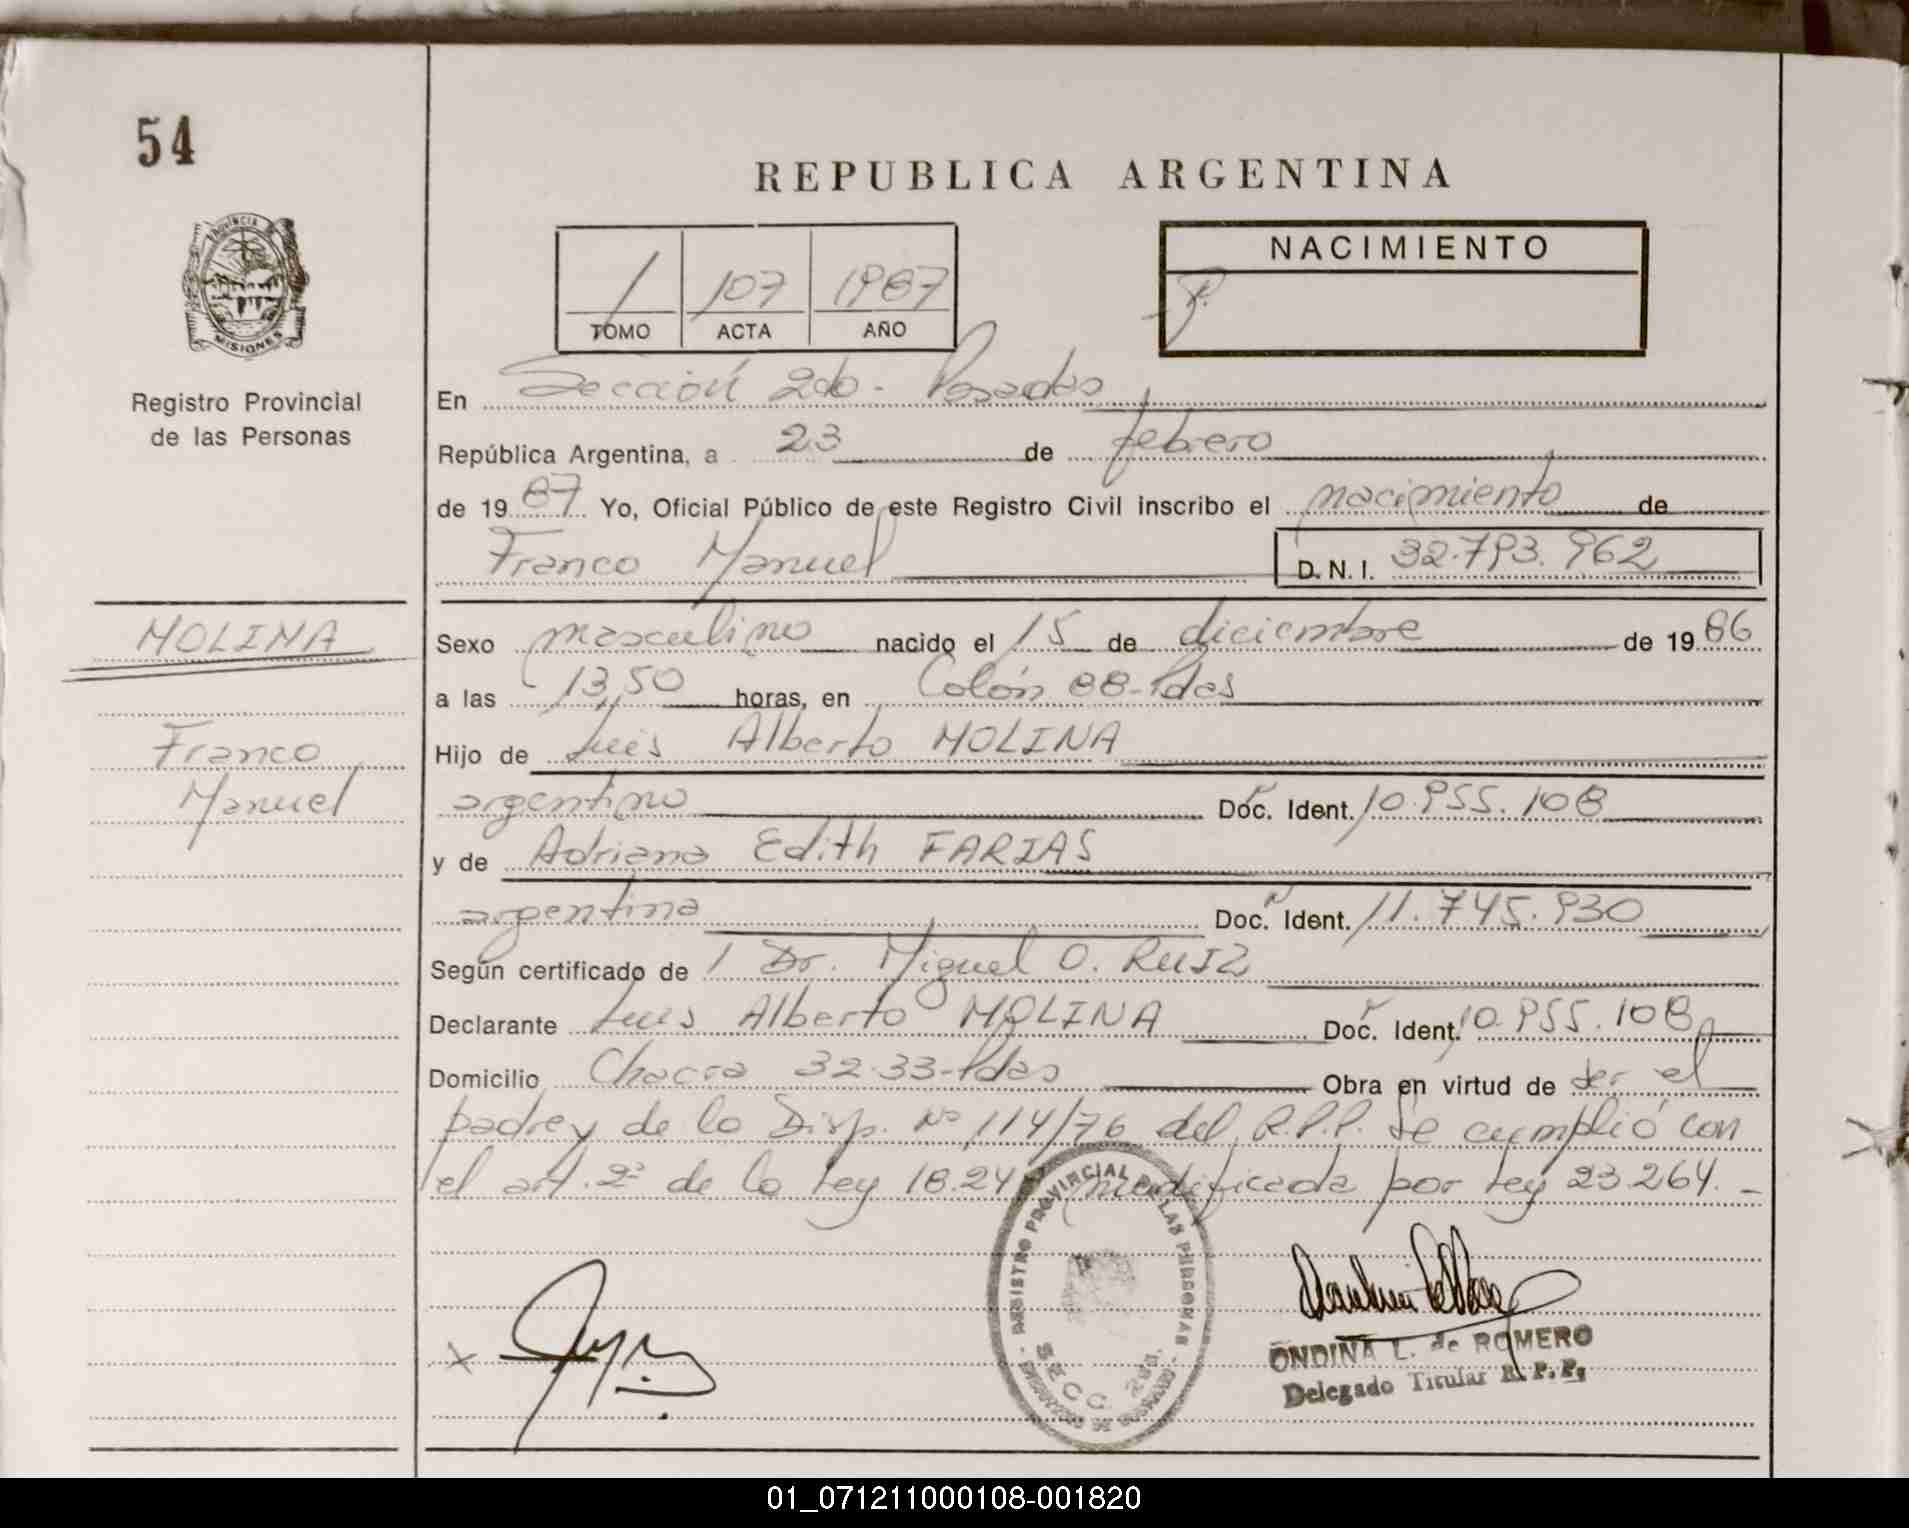 54
REPUBLICA ARGENTINA
PROVINCIA
MISIONES
Registro Provincial
de las Personas
1 107 1987
TOMO ACTA AÑO
NACIMIENTO
En Sección 2da- Posadas
República Argentina, a 23 de febrero
de 1987 Yo, Oficial Público de este Registro Civil inscribo el nacimiento de
Franco Manuel D.N.I. 32.793.962
MOLINA
Franco
Manuel
Sexo masculino nacido el 15 de diciembre de 1986
a las 13,50 horas, en Colón 88-Pdas
Hijo de Luis Alberto MOLINA
argentino Doc. Ident. 10.955.108
y de Adriana Edith FARIAS
argentina Doc. Ident. 11.745.930
Según certificado de 1 Dr. Miguel O. RUIZ
Declarante Luis Alberto MOLINA Doc. Ident. 10.955.108
Domicilio Chacra 32-33-Pdas Obra en virtud de ser el
padre y de la Disp. Nº 114/76 del R.P.P. Se cumplió con
el art. 2º de la Ley 18.24 modificada por Ley 23.264.-
REGISTRO PROVINCIAL DE LAS PERSONAS
SECC. 2da.
x
ONDINA L. de ROMERO
Delegado Titular R.P.P.
01_071211000108-001820